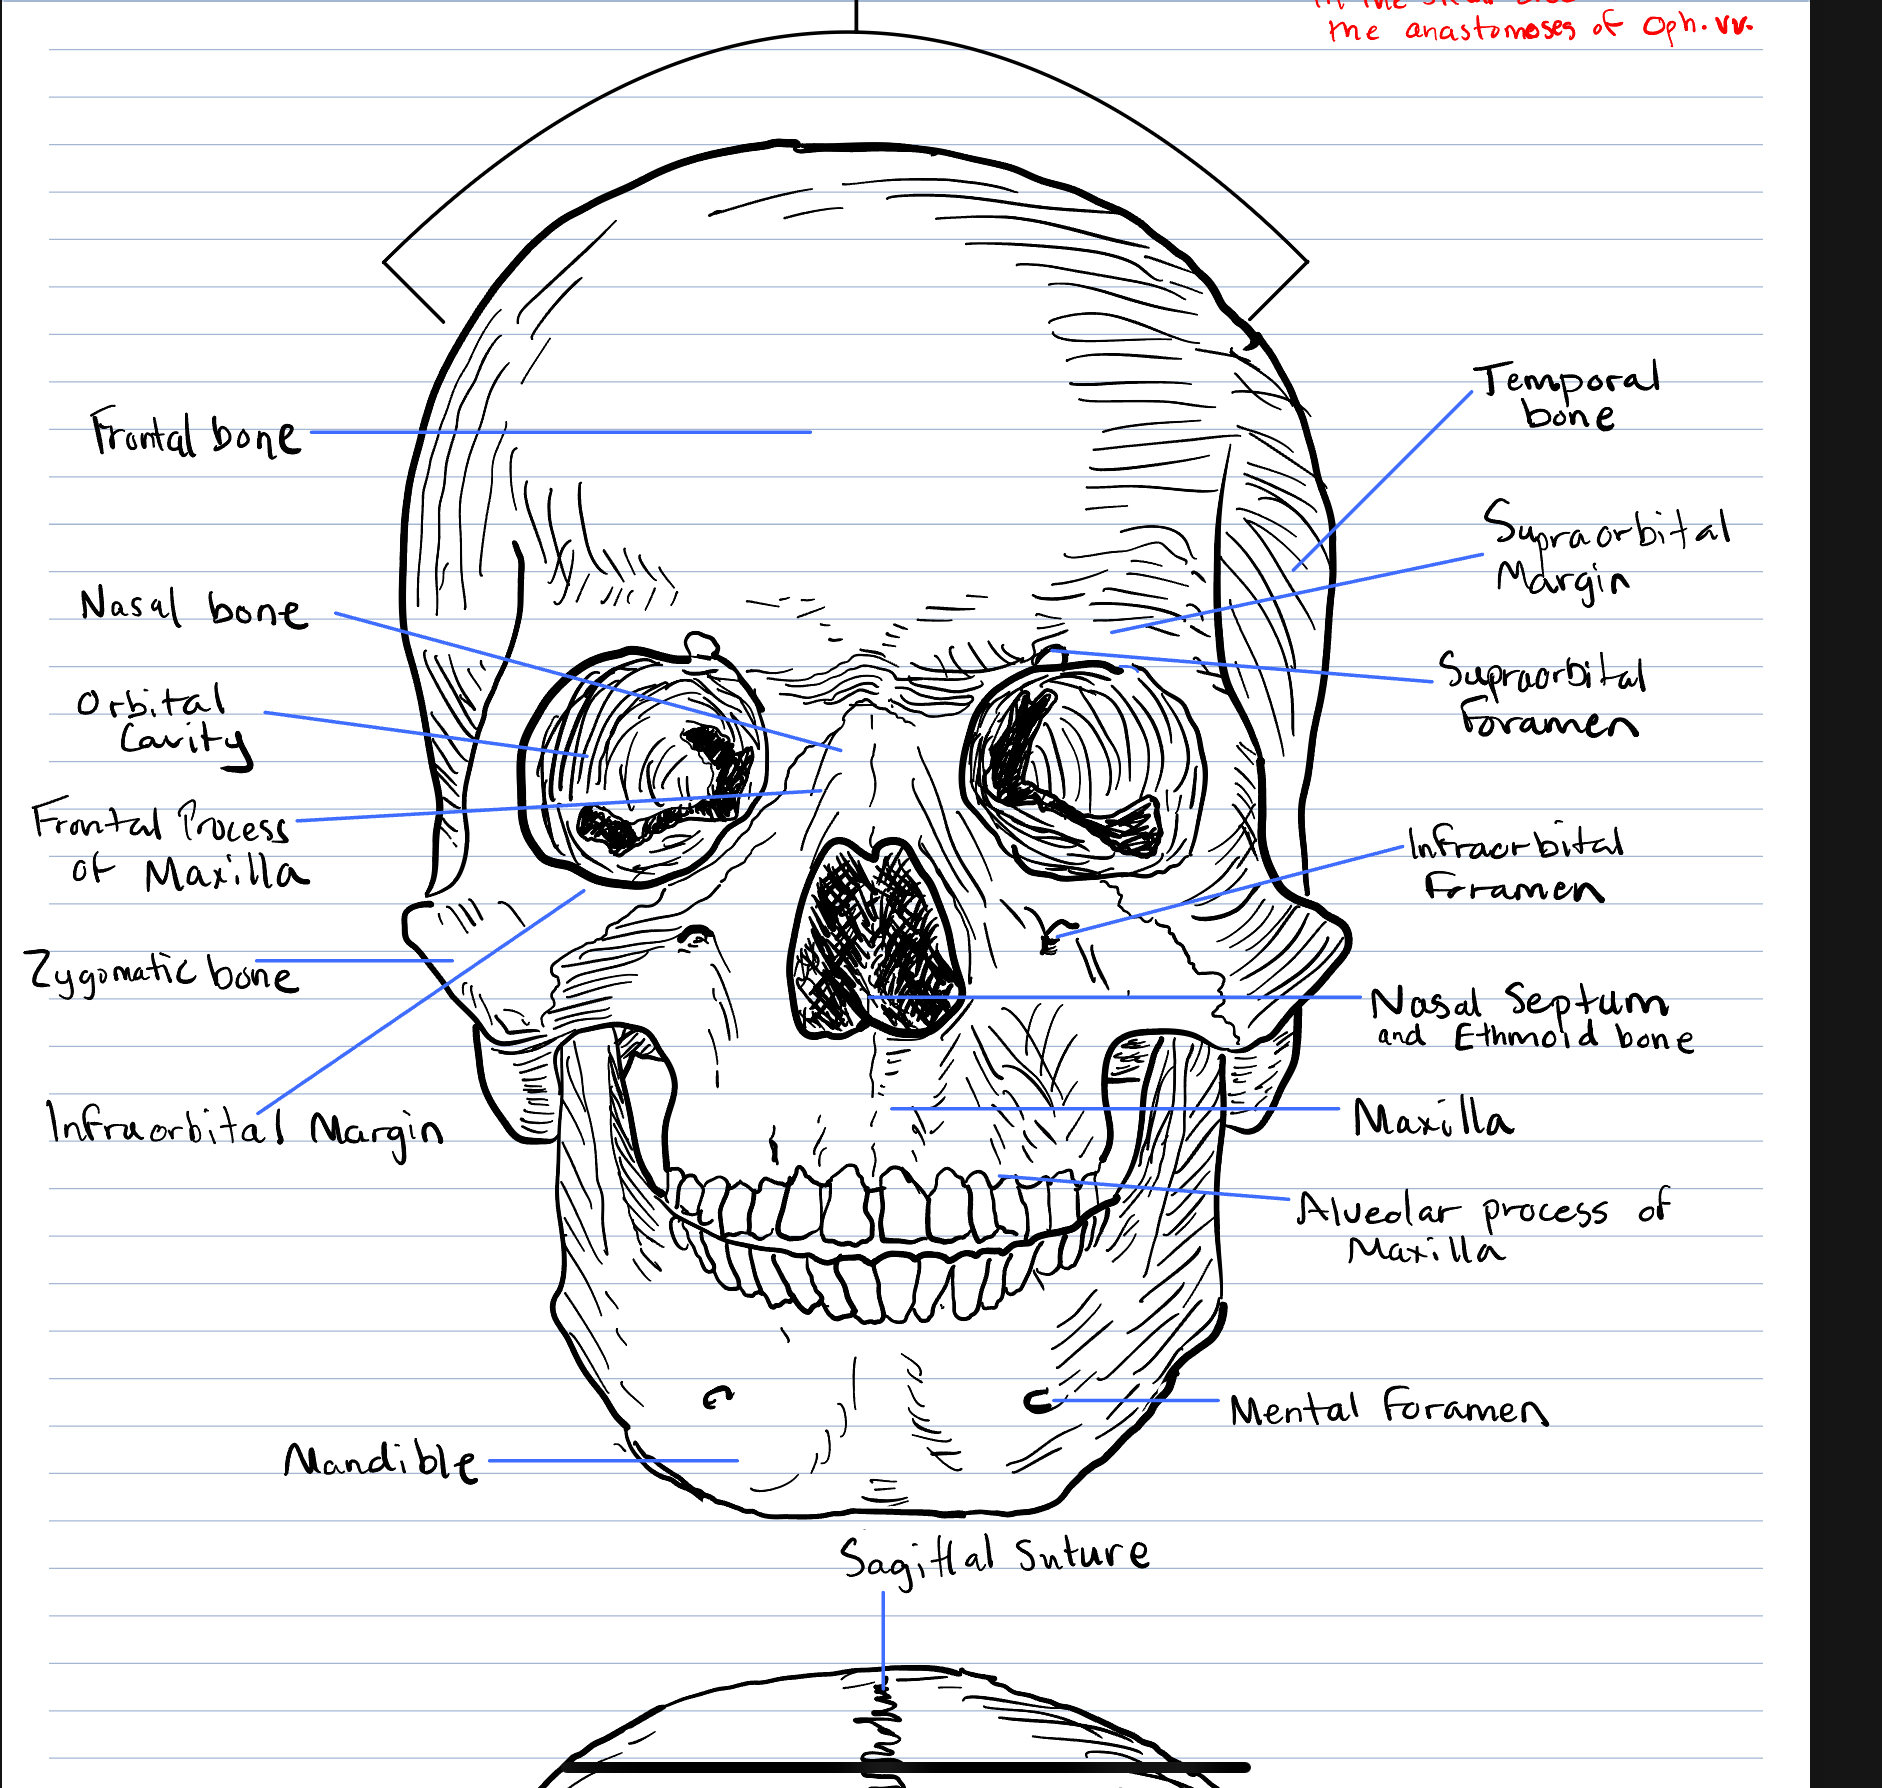 the anastomoses of Oph. vv.
Temporal
bone
Frontal bone
Supraorbital
Margin
Nasal bone
Supraorbital
Foramen
Orbital
Cavity
Frontal Process
of Maxilla
Infraorbital
Forramen
Zygomatic bone
Nasal Septum
and Ethmoid bone
Infraorbital Margin
Maxilla
Alveolar process of
Maxilla
Mental Foramen
Mandible
Sagittal Suture